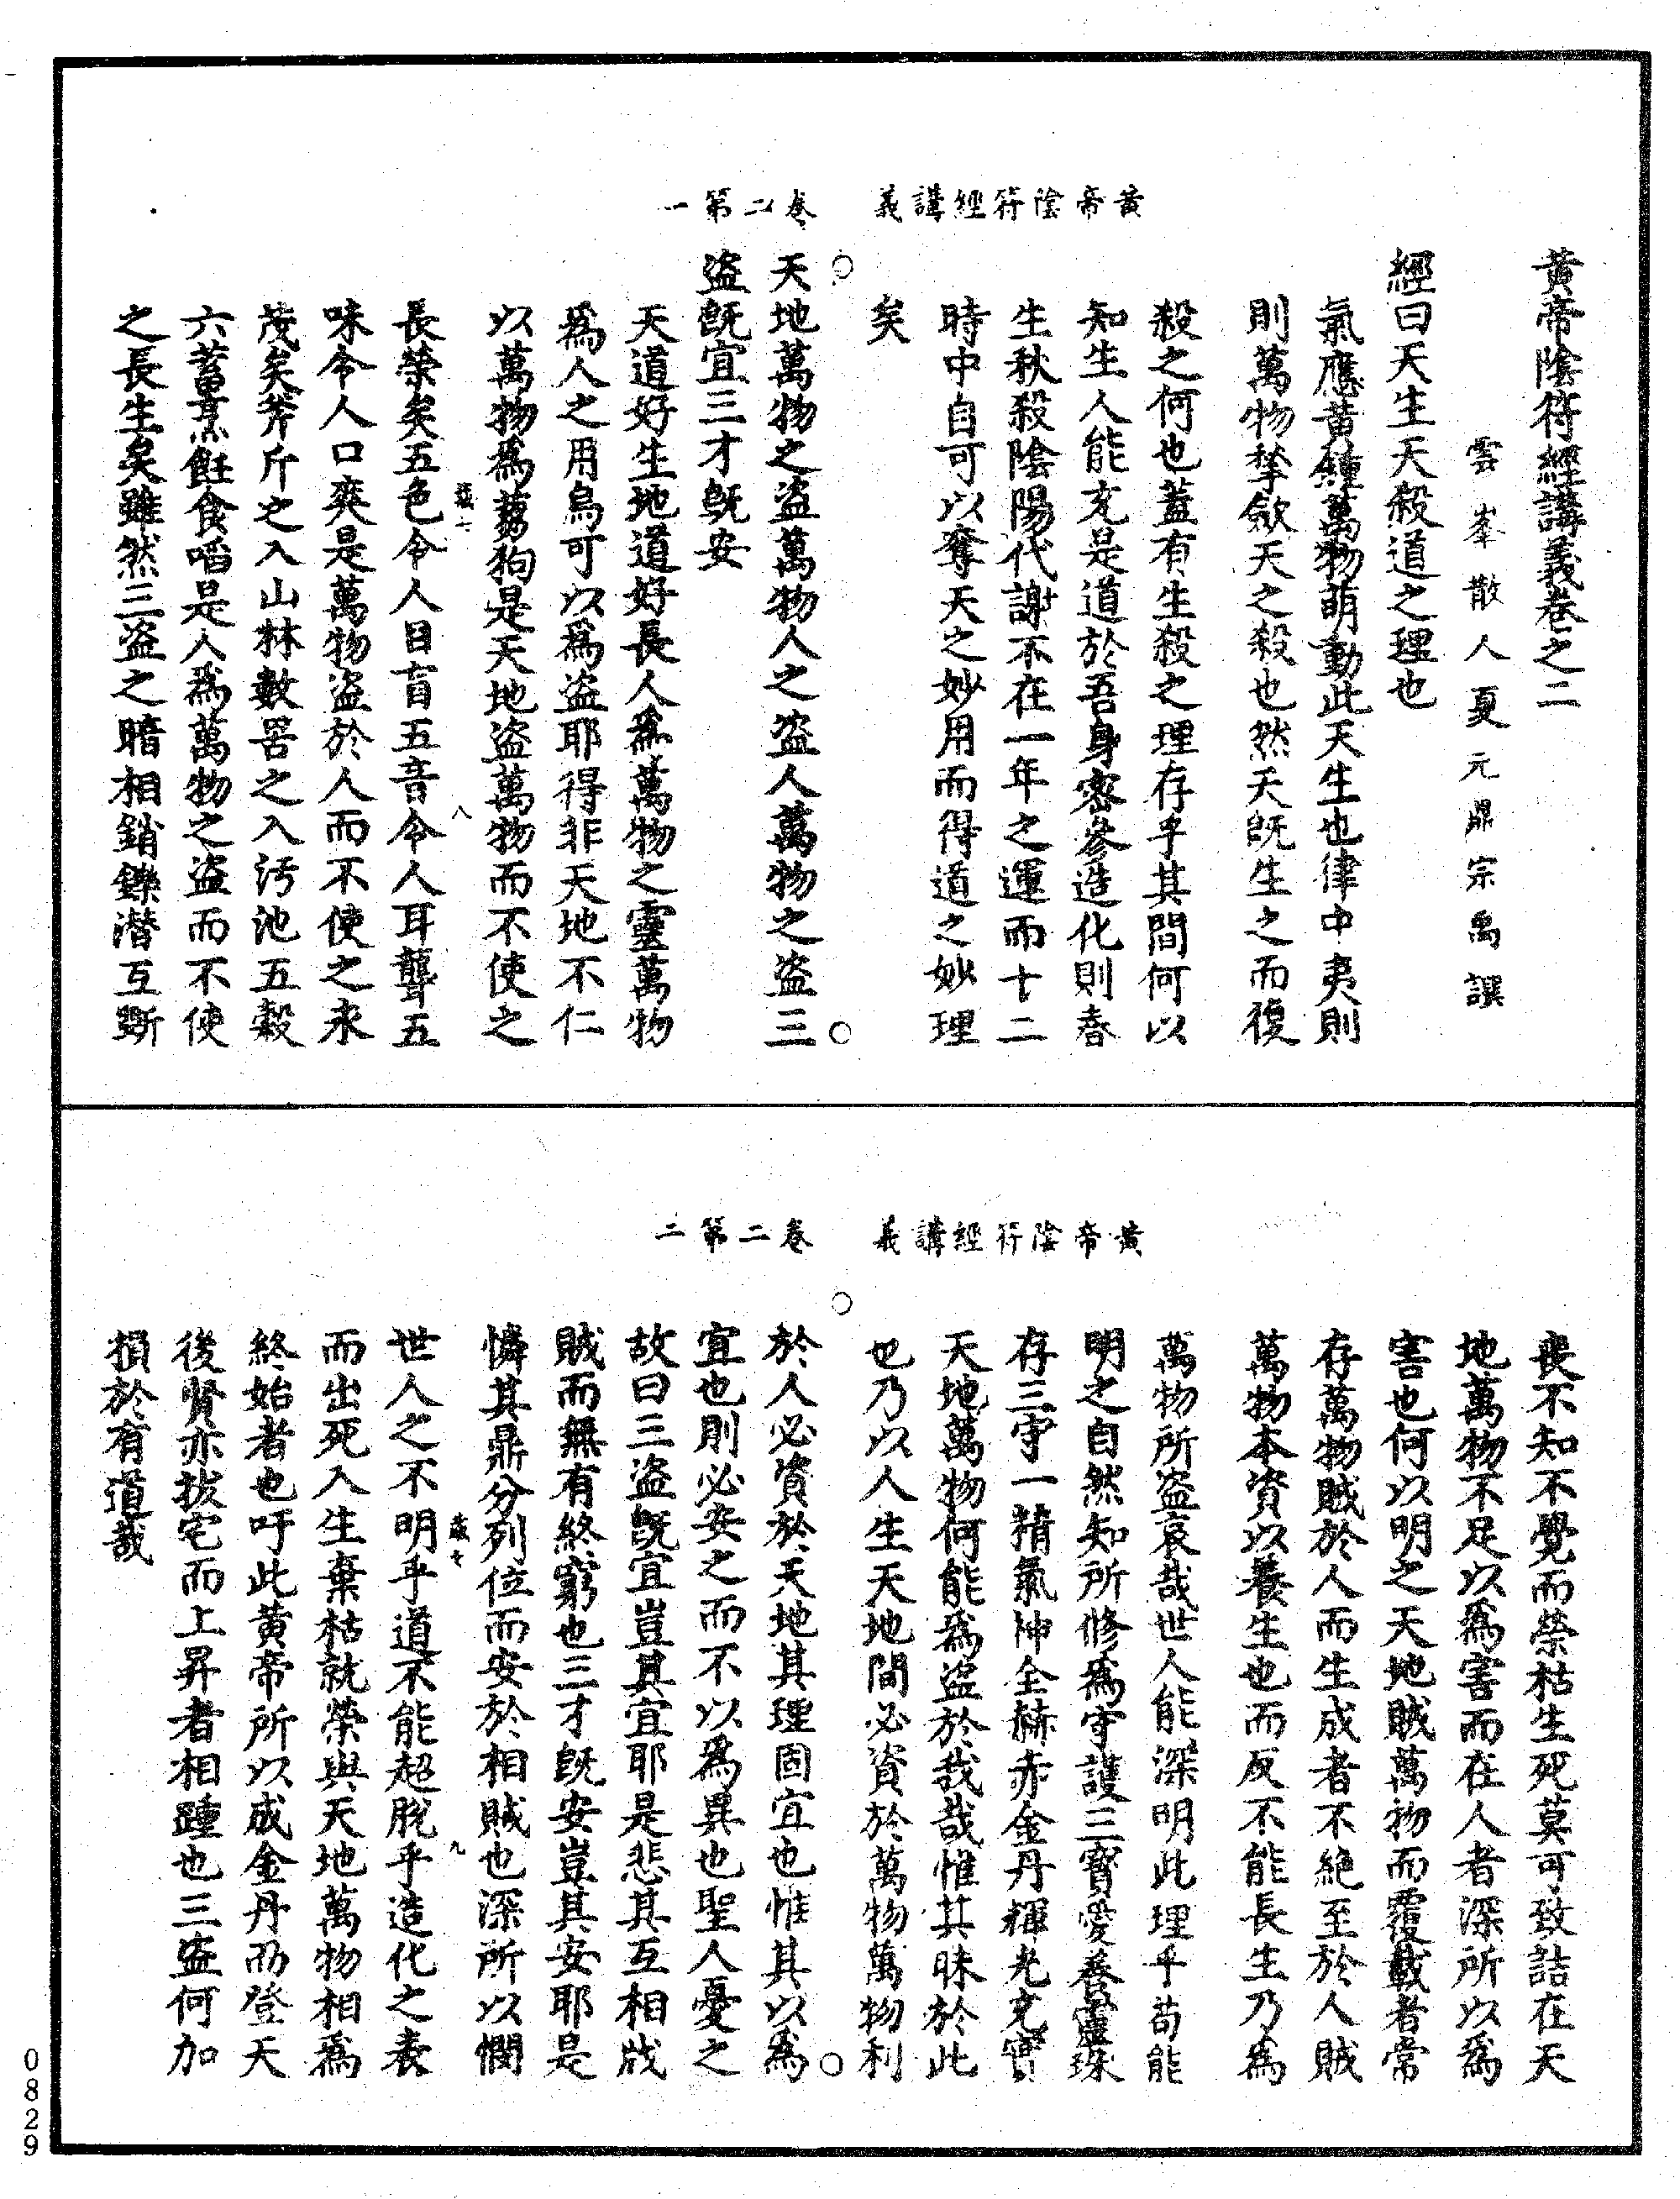 黃帝陰符經講義　卷二第一
黃帝陰符經講義卷之二
雲峯散人夏元鼎宗禹譔
經曰天生天殺道之理也
氣應黃鍾萬物萌動此天生也律中夷則
則萬物揫歛天之殺也然天旣生之而復
殺之何也蓋有生殺之理存乎其間何以
知生人能充是道於吾身密參造化則春
生秋殺陰陽代謝不在一年之運而十二
時中自可以奪天之妙用而得道之妙理
矣
天地萬物之盜萬物人之盜人萬物之盜三
盜旣宜三才旣安
天道好生地道好長人爲萬物之靈萬物
爲人之用烏可以爲盜耶得非天地不仁
以萬物爲芻狗是天地盜萬物而不使之
長榮矣五色令人目盲五音令人耳聾五
味令人口爽是萬物盜於人而不使之永
茂矣斧斤之入山林數罟之入汚池五穀
六蓄烹飪食啗是人爲萬物之盜而不使
之長生矣雖然三盜之暗相銷鑠潛互斲
黃帝陰符經講義　卷二第二
喪不知不覺而榮枯生死莫可致詰在天
地萬物不足以爲害而在人者深所以爲
害也何以明之天地賊萬物而覆載者常
存萬物賊於人而生成者不絕至於人賊
萬物本資以養生也而反不能長生乃爲
萬物所盜哀哉世人能深明此理乎苟能
明之自然知所修爲守護三寶愛養靈珠
存三守一精氣神全赫赤金丹輝光充實
天地萬物何能爲盜於我哉惟其昧於此
也乃以人生天地間必資於萬物萬物利
於人必資於天地其理固宜也惟其以爲
宜也則必安之而不以爲異也聖人憂之
故曰三盜旣宜宜豈其宜耶是悲其互相戕
賊而無有終窮也三才旣安豈其安耶是
憐其鼎分列位而安於相賊也深所以憫
世人之不明乎道不能超脫乎造化之表
而出死入生棄枯就榮與天地萬物相爲
終始者也吁此黃帝所以成金丹而登天
後賢亦拔宅而上昇者相踵也三盜何加
損於有道哉
0829